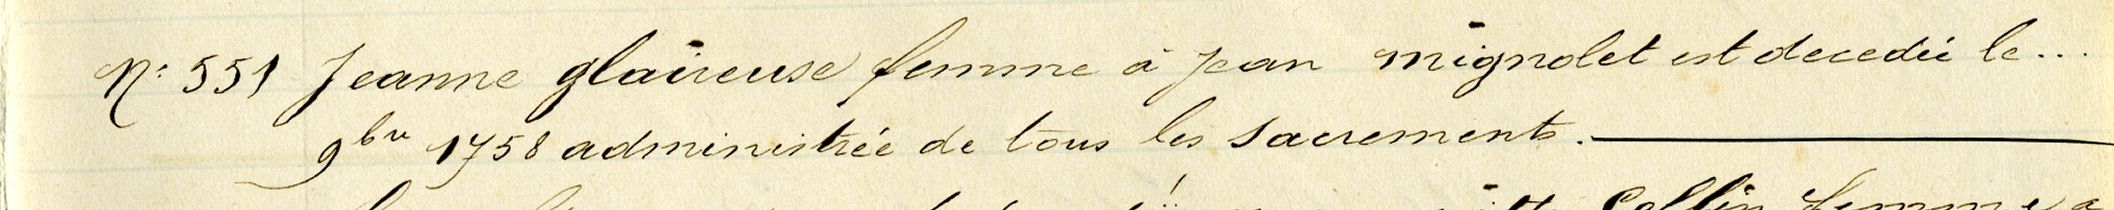 N: 551 Jeanne glaireuse femme à Jean mignolet est decedéé le...
9bre 1758 administrée de tous les sacrements.
Collin femme a